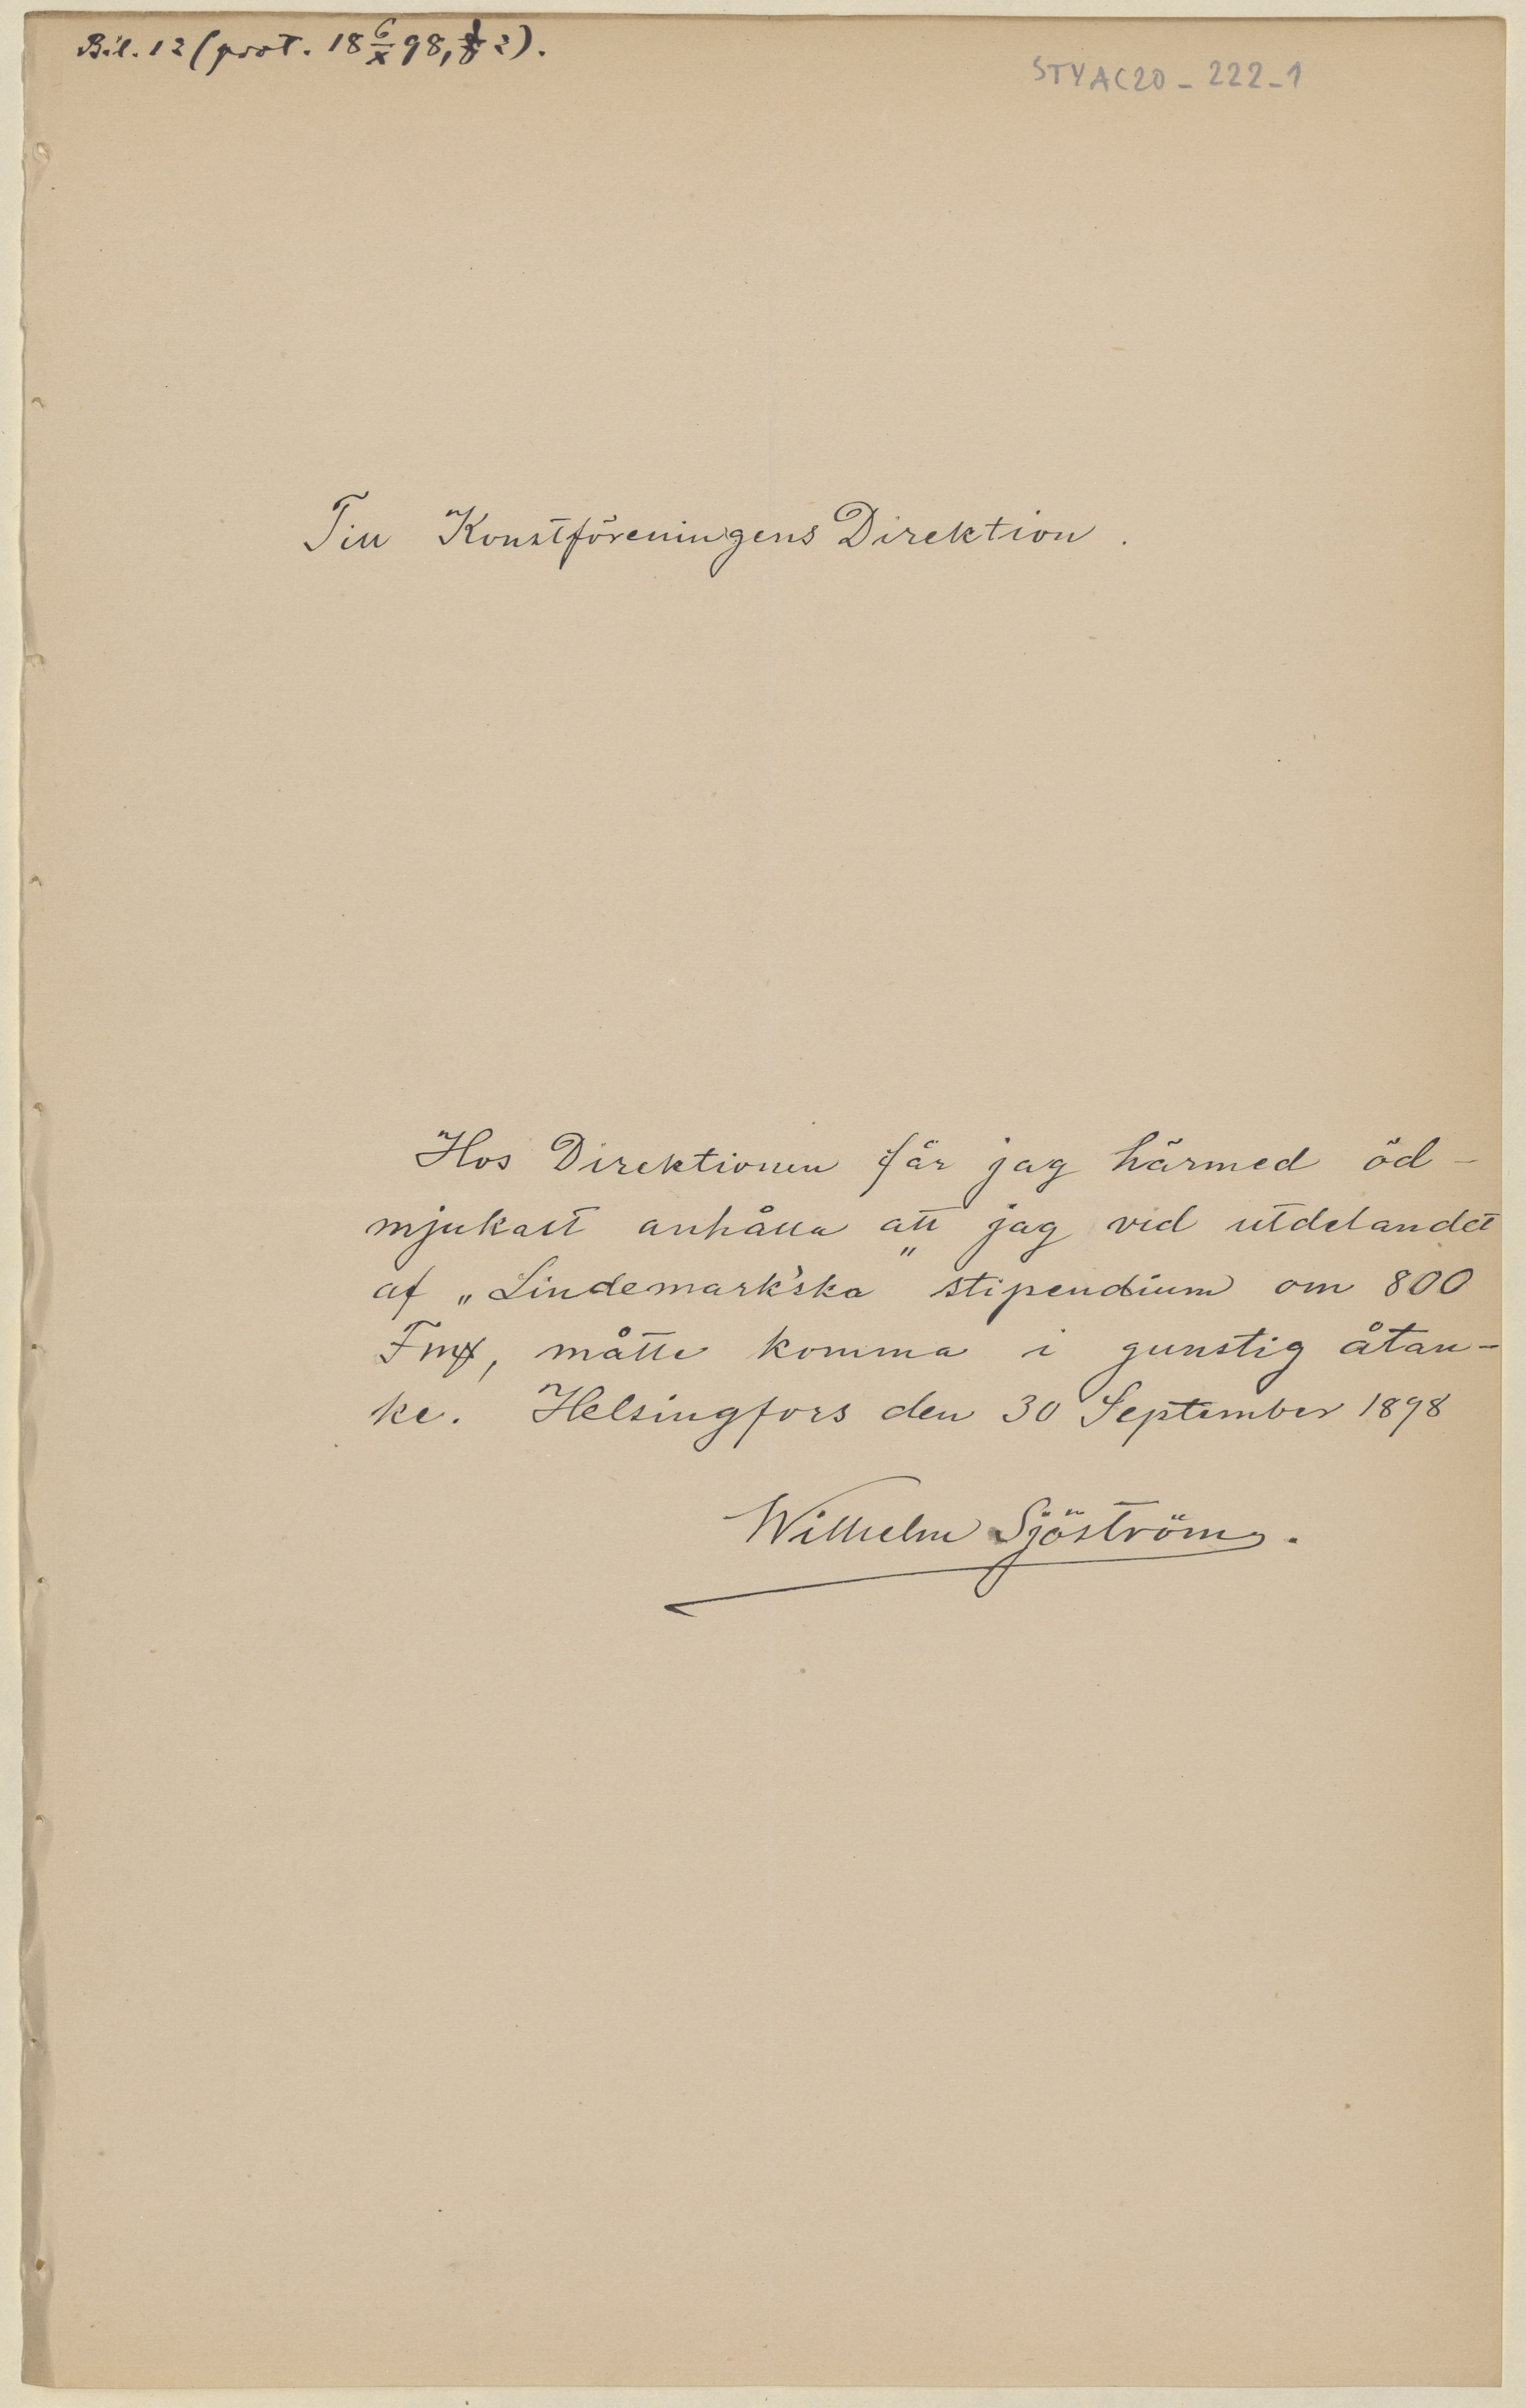 Bil. 12 (prot. 18 6/X 98, § 2).
STYAC20-222-1
Till Konstföreningens Direktion.
Hos Direktionen får jag härmed öd-
mjukast anhålla att jag vid utdelandet
af „Lindemark'ska" stipendium om 800
Fmk, måtte komma i gunstig åtan-
ke. Helsingfors den 30 September 1898
Wilhelm Sjöström.